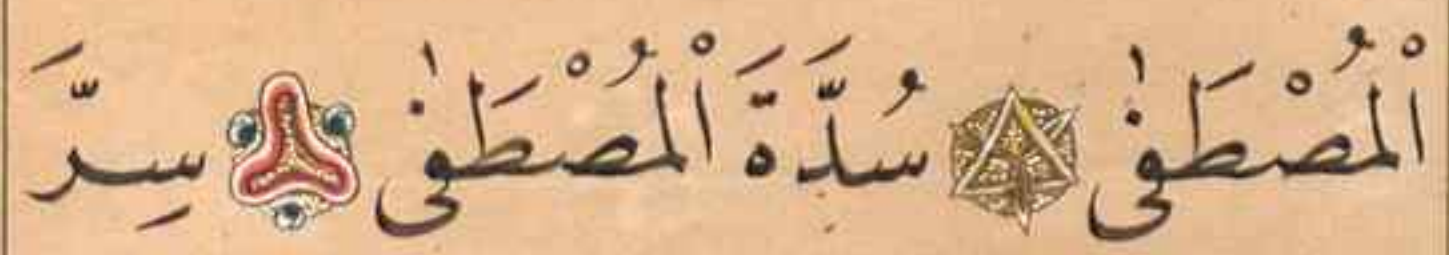 الْمُصْطَفٰى سُدَّةَ الْمُصْطَفٰى سِرَّ